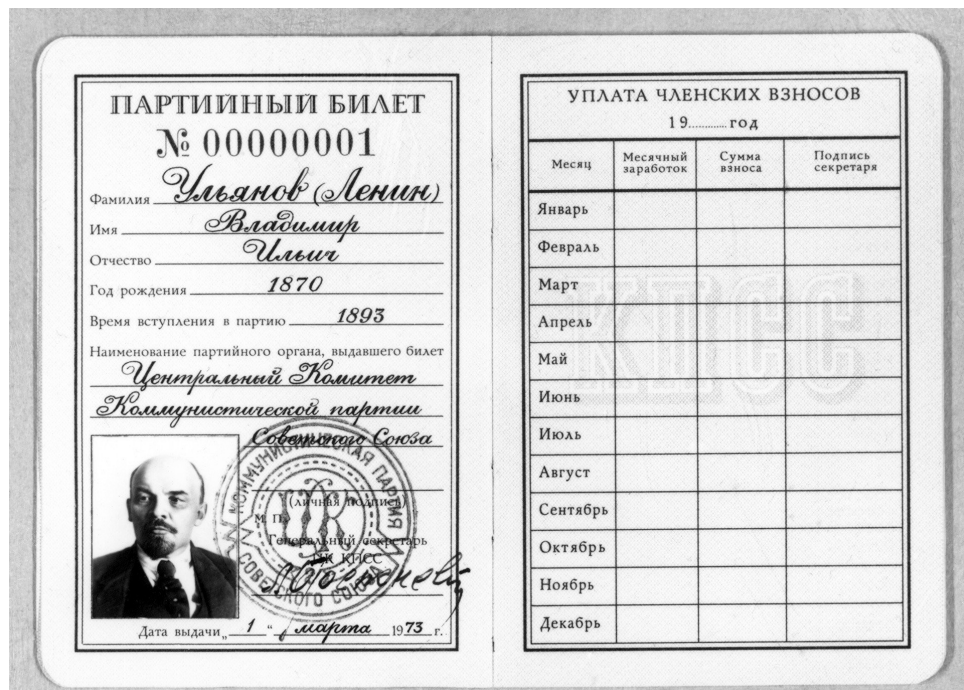 ПАРТИЙНЫЙ БИЛЕТ
№ 00000001
Фамилия Ульянов (Ленин)
Имя Владимир
Отчество Ильич
Год рождения 1870
Время вступления в партию 1893
Наименование партийного органа, выдавшего билет
Центральный Комитет
Коммунистической партии
Советского Союза
(личная подпись)
М. П.
Генеральный секретарь
ЦК КПСС
КОММУНИСТИЧЕСКАЯ ПАРТИЯ
СОВЕТСКОГО СОЮЗА
ЦК
Дата выдачи „ 1 “ марта 1973 г.
УПЛАТА ЧЛЕНСКИХ ВЗНОСОВ
19............год
Месяц Месячный заработок Сумма взноса Подпись секретаря
Январь
Февраль
Март
Апрель
Май
Июнь
Июль
Август
Сентябрь
Октябрь
Ноябрь
Декабрь
КПСС